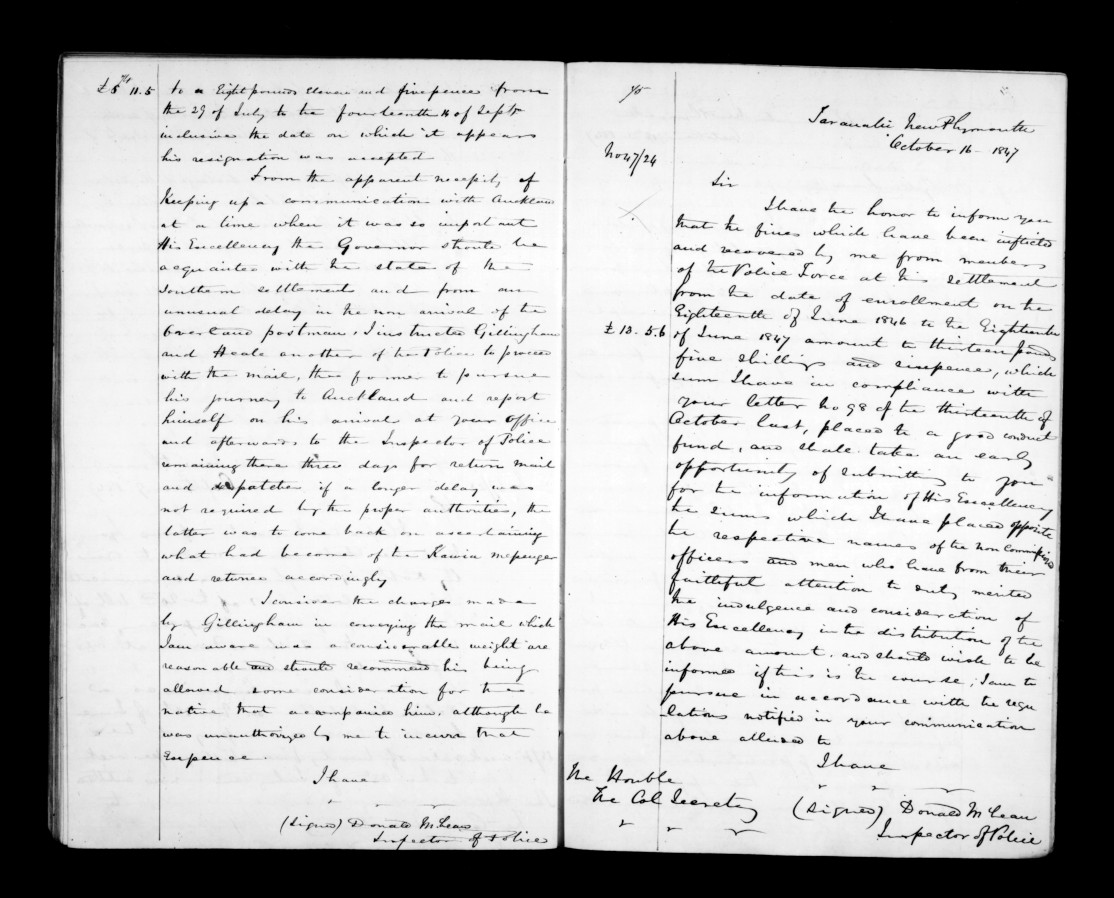 £5 11.5 to a Eight pounds eleven and fivepence from
the 29 of July to the fourteenth 14 of Septr
inclusive the date on which it appears
his resignation was accepted
From the apparent necessity of
Keeping up a communication with Auckland
at a time when it was so important
His Excellency the Governor should be
acquainted with the state of the
Southern settlement and from an
unusual delay in the non arrival of the
Overland postman, I instructed Gillingham
and Heale another of the Police to proceed
with the mail, the former to pursue
his journey to Auckland and report
himself on his arrival at your office
and afterwards to the Inspector of Police
remaining there three days for return mail
and despatches if a longer delay was
not required by the proper authorities, the
latter was to come back on ascertaining
what had become of the Kawia messenger
and returned accordingly
I consider the charges made
by Gillingham in conveying the mail which
I am aware was a considerable weight are
reasonable and should recommend his being
allowed some consideration for the
native that accompanied him, although he
was unauthorized by me to incur that
Expence.
I have
(Signed) Donald McLean
Inspector of Police
75
Taranaki New Plymouth
October 16 - 1847
No 47/24
Sir
I have the honor to inform you
that the fines which have been inflicted
and recovered by me from members
of the Police Force at this settlement
from the date of enrollment on the
Eighteenth of June 1846 to the Eighteenth
£13.5.6 of June 1847 amount to thirteen pounds
five shillings and sixpence, which
sum I have in compliance with
your letter No 98 of the thirteenth of
October last, placed to a good conduct
fund, and shall take an early
opportunity of submitting to you
for the information of His Excellency
the sums which I have placed opposite
the respective names of the non Commissioned
officers and men who have from their
faithful attention to duty merited
the indulgence and consideration of
His Excellency in the distribution of the
above amount, and should wish to be
informed if this is the course, I am to
pursue in accordance with the regu
lations notified in your communication
above alluded to
I have
The Honble
The Col Secretary
(Signed) Donald McLean
Inspector of Police